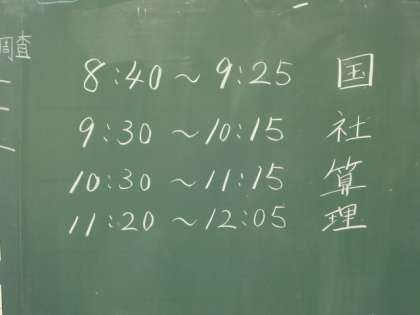 調査
8:40～9:25 国
9:30～10:15 社
10:30～11:15 算
11:20～12:05 理